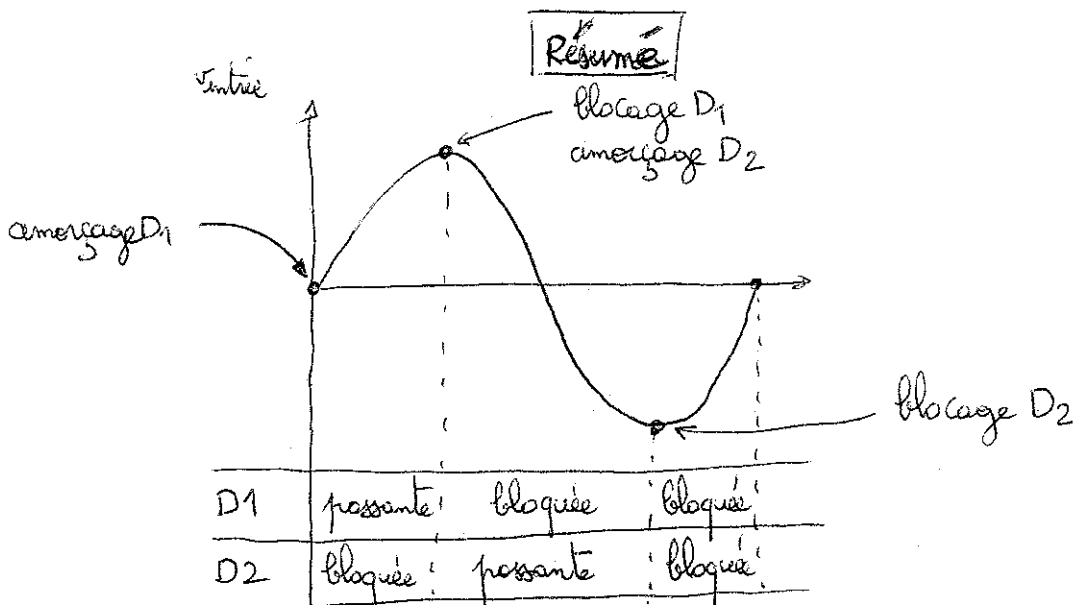 Résumé
Ventrée
blocage D1
amorçage D2
amorçage D1
blocage D2
D1 passante bloquée bloquée
D2 bloquée passante bloquée